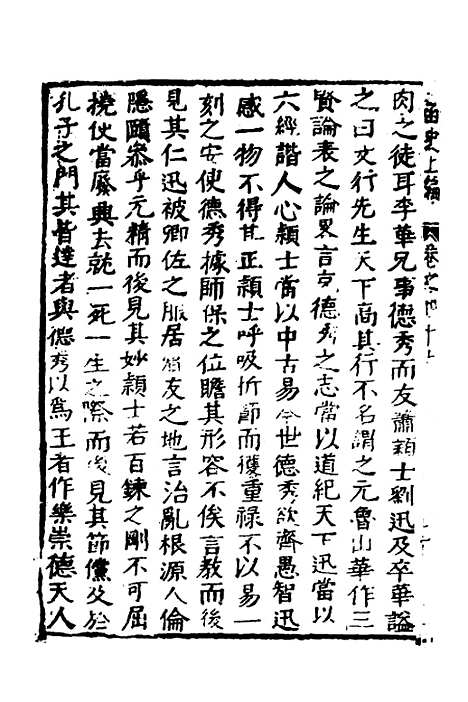 肉之徒耳李華兄事德秀而友蕭穎士劉迅及卒華謚
之曰文行先生天下高其行不名謂之元魯山華作三
賢論表之論畧言元德秀之志當以道紀天下迅當以
六經諧人心穎士當以中古易今世德秀欲齊愚智迅
感一物不得其正穎士呼吸折節而獲重祿不以易一
刻之安使德秀據師保之位瞻其形容不俟言教而後
見其仁迅被卿佐之服居賓友之地言治亂根源人倫
隱賾參乎元精而後見其妙穎士若百鍊之剛不可屈
撓使當廢興去就一死一生之際而後見其節儻及於
孔子之門其皆達者與德秀以爲王者作樂崇德天人
史上編 卷之四十